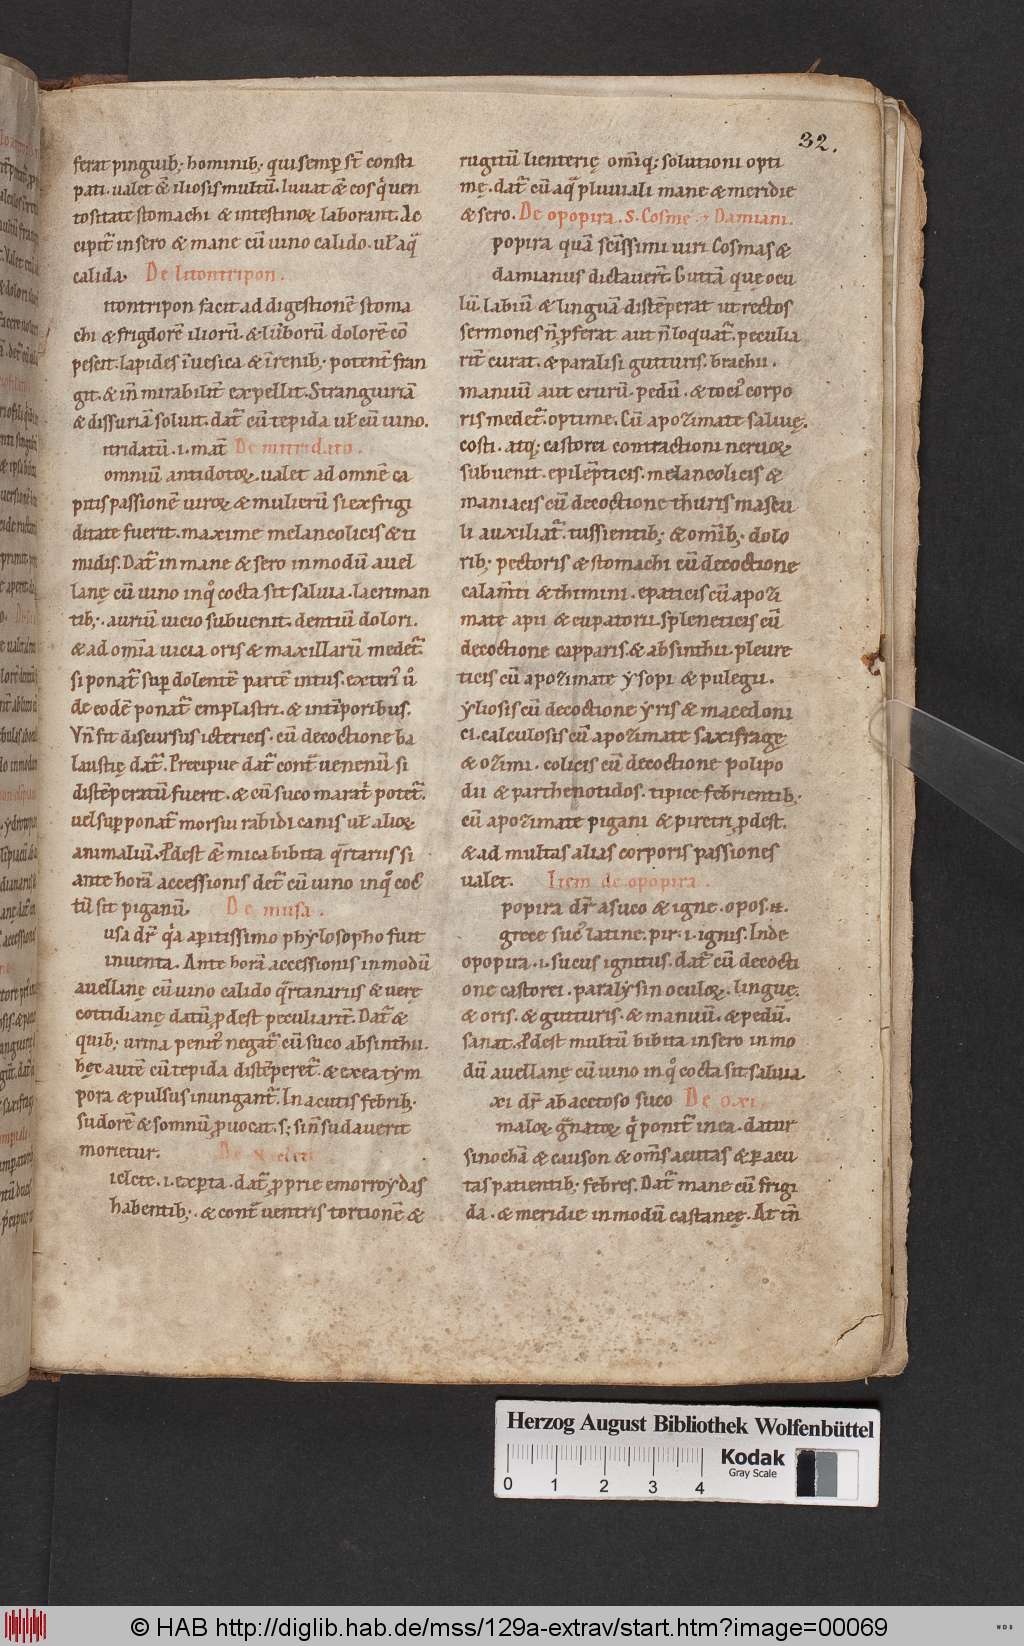 32.
ferat pinguib; hominib; qui semp st̄ consti
pati. ualet & iliosis multū. iuuat & eos q̇ uen
tositate stomachi & intestinoꝝ laborant. Ac
cipit̄ in sero & mane cū uino calido. uł aq̄
calida. De litontripon.
itontripon facit ad digestionē stoma
chi & frigdorē iliorū. & lūborū dolorē cō
pescit. lapides ī uesica & ī renib; potent̄ fran
git. & in̄ mirabilit̄ expellit. Stranguiriā
& dissuriā soluit. dat̄ cū tepida uł cū uino.
itridatū .i. mat̄ De mitridato.
omniū antidotoꝝ. ualet ad omnē ca
pitis passionē uiroꝝ & mulierū si ex frigi
ditate fuerit. maxime melancolicis & ti
midis. Dat̄ in mane & sero in modū auel
lanę cū uino in q̊ cocta sit saluia. lacriman
tib;. auriū uicio subuenit. dentiū dolori.
& ad om̄ia uicia oris & maxillarū medet̄.
si ponat̄ sup dolentē partē intus. exteri᷒ ů
de eodē ponat̄ emplastri. & int̄ poribus.
Vn̄ fit discursus ictericis. cū decoctione ba
laustię dat̄. Precipue dat̄ cont̄ uenenū si
distēperatū fuerit. & cū suco marat̄ potet̄.
uel sup ponat̄ morsui rabidi canis uł alioꝝ
animaliū. ꝓdest & mica bibita q̄rtariis si
ante horā accessionis det̄ cū uino in q̊ coc
tū sit piganū. De musa.
usa dr̄ q̇a apitissimo phylosopho fuit
inuenta. Ante horā accessionis in modū
auellanę cū uino calido q̄rtanariis & uerę
cottidianę datū ꝓdest peculiarit̄. Dat̄ &
quib; urina penit᷒ negat̄ cū suco absinthii.
hęc autē cū tepida distēperet̄ & ex ea tȳm
pora & pulsus inungant̄. In acutis febrib;
sudorē & somnū ꝓuocat. s; si n̄ sudauerit
morietur.
ielete .i. exꝑta. dat̄ ꝓprie emorroydas
habentib;. & cont̄ uentris tortionē &
rugitū lienterię om̄iq; solutioni opti
mę. dat̄ cū aq̄ pluuiali mane & meridie
& sero. De opopira. S. Cosme ⁊ Damiani.
popira quā sc̄issimi uiri Cosmas &
damianus dictauer̄t. Guttā quę ocu
lū labiū & linguā distēperat ut rectos
sermones n̄ ꝓferat aut n̄ loquat̄. peculia
rit̄ curat. & paralisi gutturis. brachii.
manuū aut crurū. pedū. & toci᷒ corpo
ris medet̄. optime. Cū apozimate saluię.
costi. atq; castorei contractioni neruoꝝ
subuenit. epilēpticis. melancolicis &
maniacis cū decoctione thuris mascu
li auxiliat̄. tussientib; & om̄ib; dolo
rib; pectoris & stomachi cū decoctione
calam̄ti & thimini. epaticis cū apozi
mate apii & eupatorii. spleneticis cū
decoctione capparis. & absinthii. pleure
ticis cū apozimate ysopi & pulegii.
yliosis cū decoctione yris & macedoni
ci. calculosis cū apozimate saxifragę
& ozimi. colicis cū decoctione polipo
dii & parthenotidos. tipice febrientib;
cū apozimate pigani & piretri ꝓdest.
& ad multas alias corporis passiones
ualet. Item de opopira.
popira dr̄ a suco & igne. opos .n.
grece suc᷒ latine. pir .i. ignis. Inde
opopira .i. sucus ignitus. dat̄ cū decocti
one castorei. paralysin oculoꝝ. linguę.
& oris. & gutturis. & manuū. & pedū.
sanat. ꝓdest multū bibita in sero in mo
dū auellanę cū uino in q̊ cocta sit saluia.
xi dr̄ ab acetoso suco De oxi.
maloꝝ g̃natoꝝ q̇ ponit̄ in ea. datur
sinochā & causon & om̄s acutas & ꝑacu
tas patientib; febres. Dat̄ mane cū frigi
da. & meridie in modū castaneę. At in̄
Herzog August Bibliothek Wolfenbüttel
Kodak
Gray Scale
0 1 2 3 4
© HAB http://diglib.hab.de/mss/129a-extrav/start.htm?image=00069